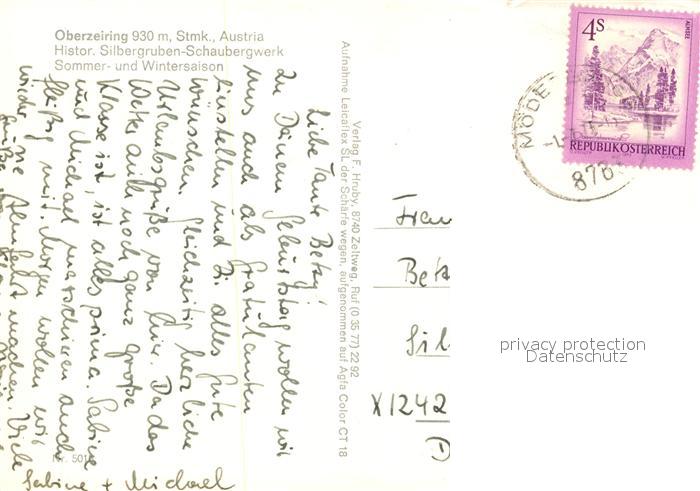 Oberzeiring 930 m, Stmk., Austria
Histor. Silbergruben-Schaubergwerk
Sommer- und Wintersaison
Liebe Tante Betzy!
Zu Deinem Geburtstag wollen wir
uns auch als Gratulanten
einstellen und Dir alles Gute
wünschen. Gleichzeitig herzliche
Urlaubsgrüße von hier. Da das
Wetter auch noch ganz große
Klasse ist, ist alles prima. Sabine
und Michael marschieren auch
fleißig mit. Morgen wollen wir
wieder eine machen. Viele
Sabine + Michael
Nr. 501
Verlag F. Hruby, 8740 Zeltweg, Ruf (0 35 77) 22 92
Aufnahme Leicaflex SL der Schärfe wegen, aufgenommen auf Agfa Color CT 18
4s
ALMSEE
REPUBLIK ÖSTERREICH
MÖDE
878
Frau
Betz
Sil
X1242
D
privacy protection
Datenschutz